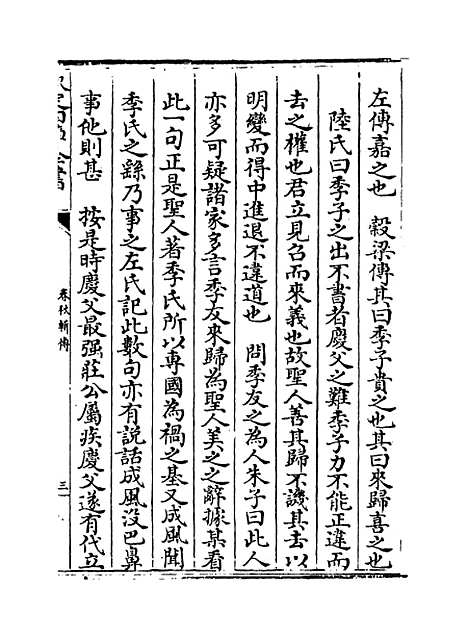 左傳嘉之也　穀梁傳其曰季子貴之也其曰來歸喜之也
陸氏曰季子之出不書者慶父之難季子力不能正違而
去之權也君立見召而來義也故聖人善其歸不譏其去以
明變而得中進退不違道也　問季友之為人朱子曰此人
亦多可疑諸家多言季友來歸為聖人美之之辭據某看
此一句正是聖人著季氏所以專國為禍之基又成風聞
季氏之繇乃事之左氏記此數句亦有說話成風没巴鼻
事他則甚　按是時慶父最强莊公屬疾慶父遂有代立
欽定四庫全書
春秋輯傳
三